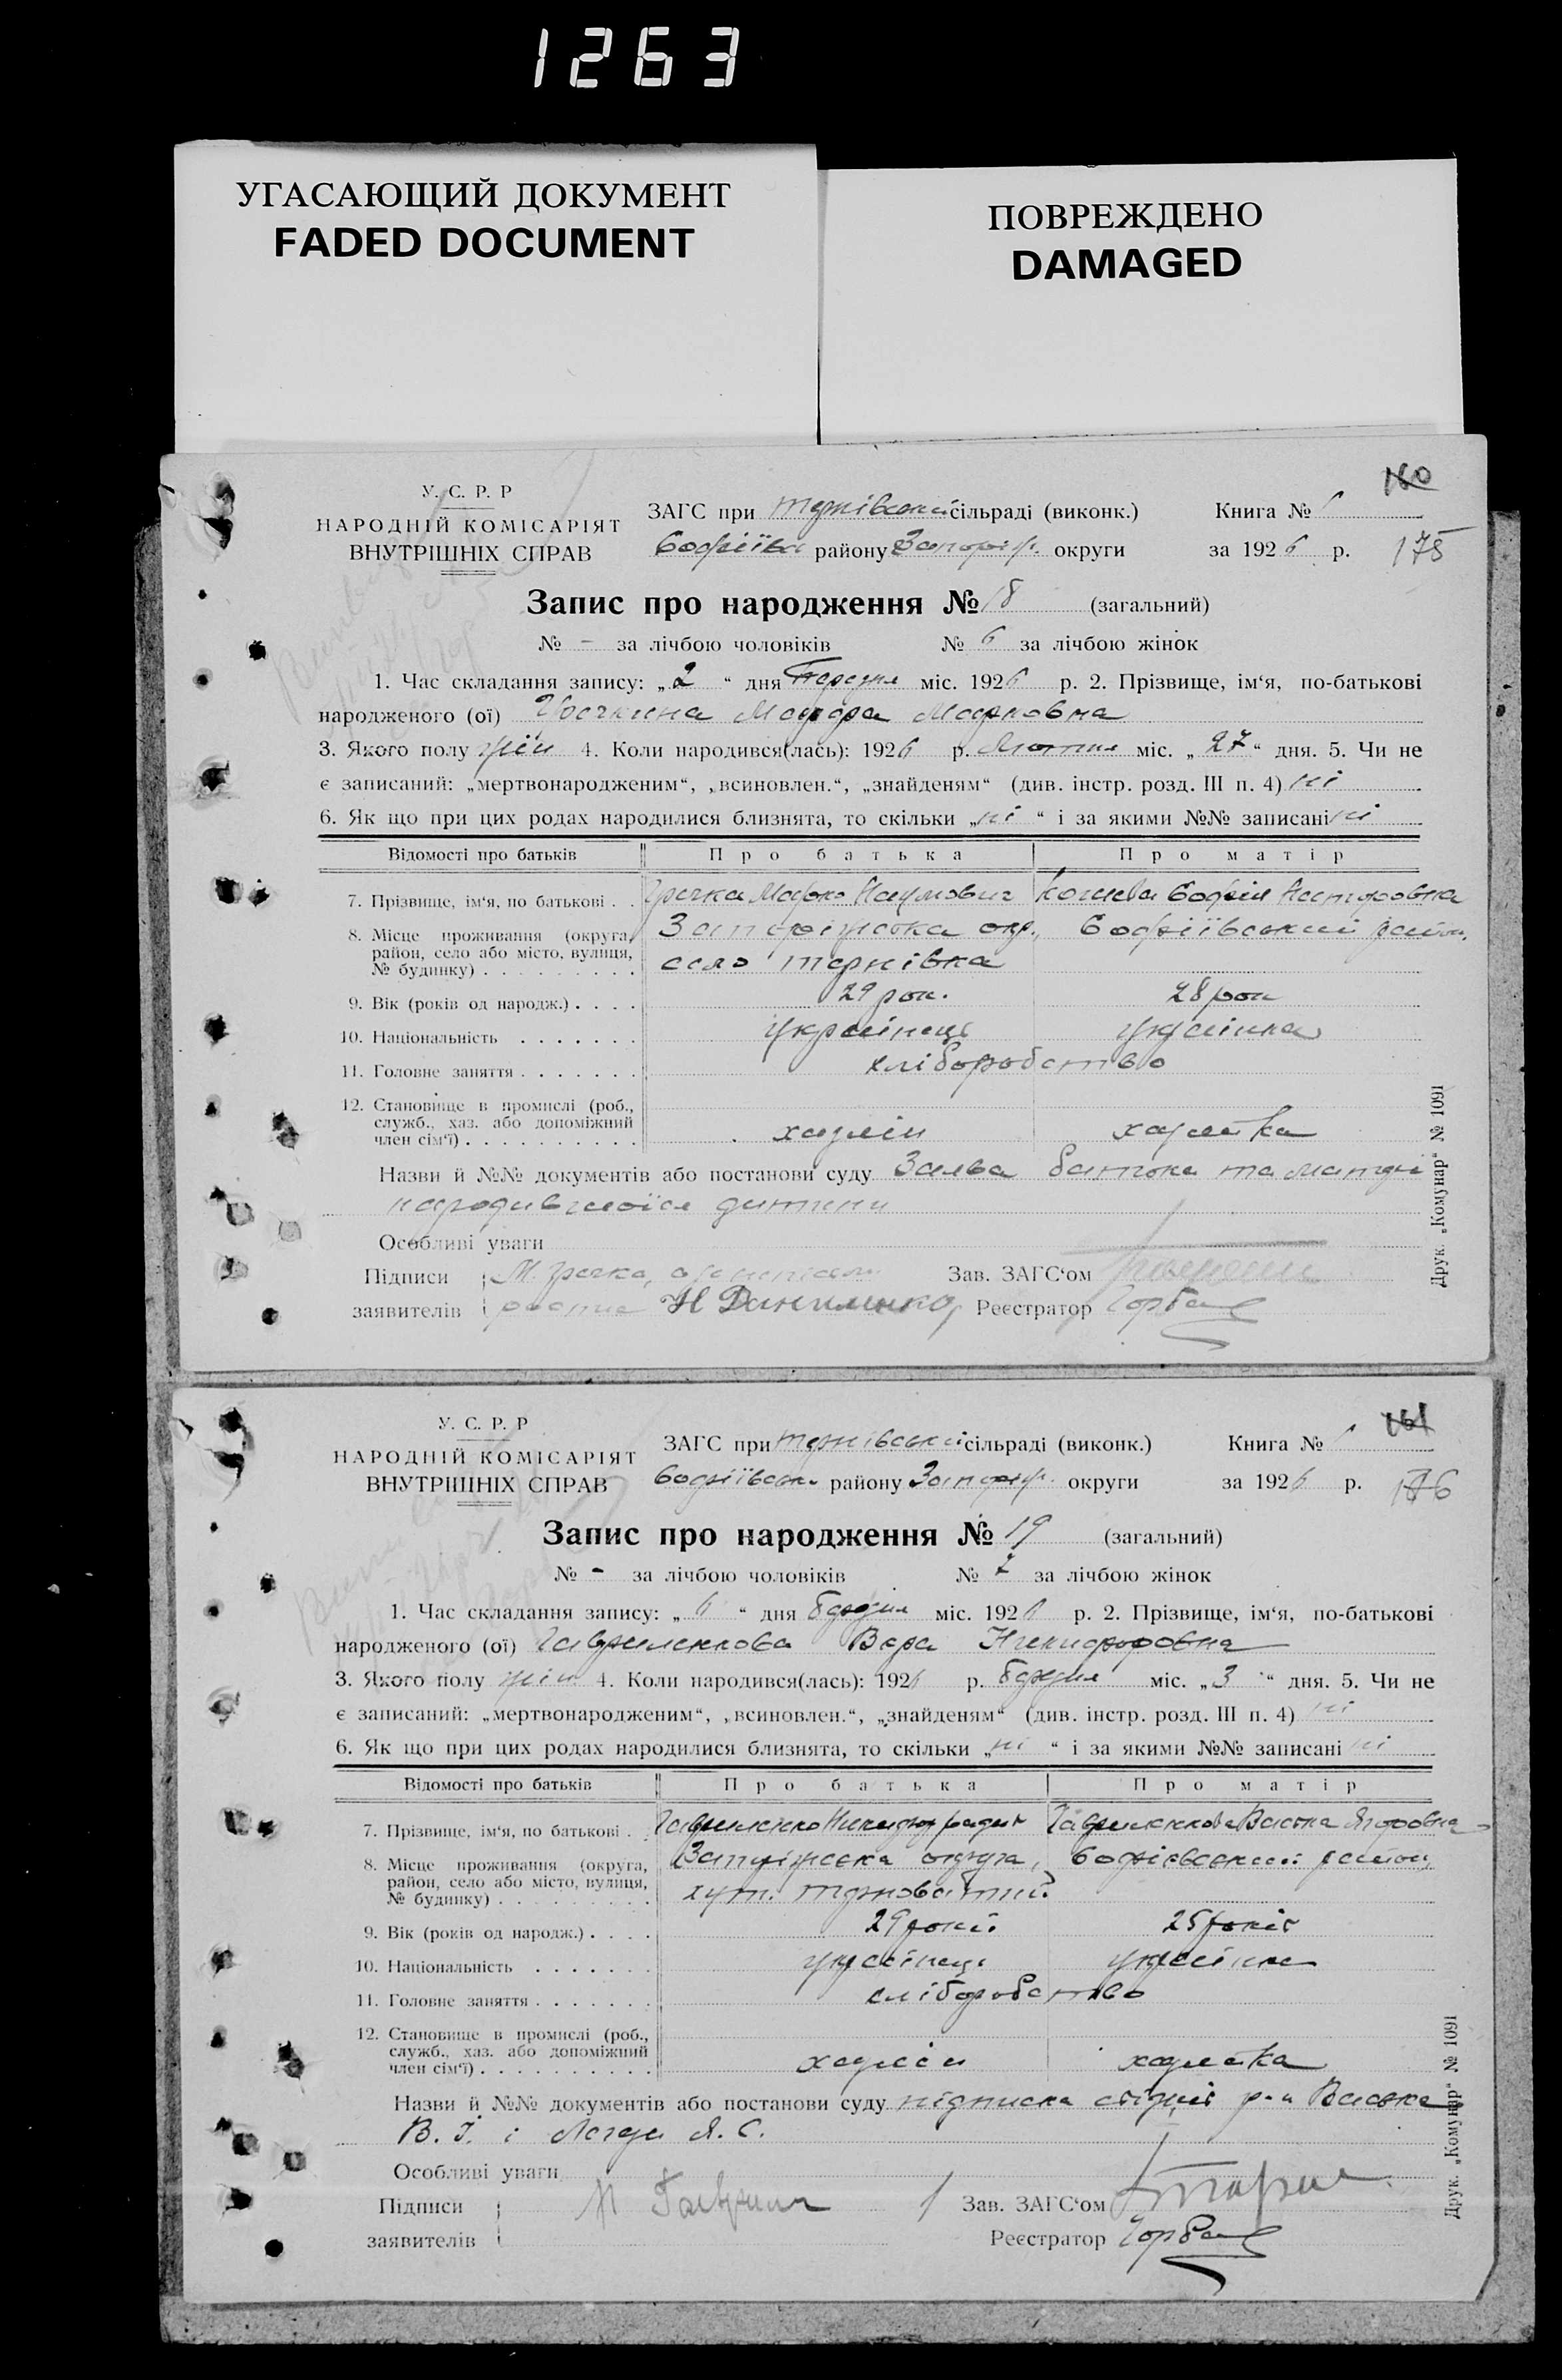 1263
УГАСАЮЩИЙ ДОКУМЕНТ
FADED DOCUMENT
ПОВРЕЖДЕНО
DAMAGED
160
У. С. Р. Р
НАРОДНІЙ КОМІСАРІЯТ
ВНУТРІШНІХ СПРАВ
ЗАГС при Тернівській сільраді (виконк.) Книга № 1
Софіївськ району Запоріж. округи за 1926 р. 175
Запис про народження № 18 (загальний)
№ - за лічбою чоловіків № 6 за лічбою жінок
1. Час складання запису: „2“ дня Березня міс. 1926 р. 2. Прізвище, ім‘я, по-батькові
народженого (ої) Марковна
3. Якого полу жін 4. Коли народився(лась): 1926 р. Лютня міс. „27“ дня. 5. Чи не
є записаний: „мертвонародженим“, „всиновлен.“, „знайденям“ (див. інстр. розд. III п. 4) ні
6. Як що при цих родах народилися близнята, то скільки „ні“ і за якими №№ записані ні
Відомості про батьків Про батька Про матір
7. Прізвище, ім‘я, по батькові . . Гречка Марко Наумович Софія
8. Місце проживання (округа, район, село або місто, вулиця, № будинку) . . . . . . . . . Запоріжська окр., Софіївський район,
село Тернівка
9. Вік (років од народж.) . . . . 29 рок. 28 рок
10. Національність . . . . . . . українець українка
11. Головне заняття . . . . . . . хліборобство
12. Становище в промислі (роб., служб., хаз. або допоміжний член сім‘ї) . . . . . . . . . . хазяїн хазяйка
Назви й №№ документів або постанови суду Заява батька та матери
народившоїся дитини
Особливі уваги
Підписи М. Гречка, Зав. ЗАГС‘ом
заявителів Н Даниленко, Реєстратор Горбань
Друк. „Комунар“ № 1091
161
У. С. Р. Р
НАРОДНІЙ КОМІСАРІЯТ
ВНУТРІШНІХ СПРАВ
ЗАГС при Тернівській сільраді (виконк.) Книга № 1
Софіївськ. району Запоріж. округи за 1926 р. 176
Запис про народження № 19 (загальний)
№ - за лічбою чоловіків № 7 за лічбою жінок
1. Час складання запису: „6“ дня березня міс. 1926 р. 2. Прізвище, ім‘я, по-батькові
народженого (ої) Гавриленкова Вера Никифоровна
3. Якого полу жін 4. Коли народився(лась): 1926 р. березня міс. „3“ дня. 5. Чи не
є записаний: „мертвонародженим“, „всиновлен.“, „знайденям“ (див. інстр. розд. III п. 4) ні
6. Як що при цих родах народилися близнята, то скільки „ні“ і за якими №№ записані ні
Відомості про батьків Про батька Про матір
7. Прізвище, ім‘я, по батькові . Гавриленко Никифор Гавриленкова
8. Місце проживання (округа, район, село або місто, вулиця, № будинку) . . . . . . . . . Запоріжська округа, Софієвський район,
хут. Терноватий
9. Вік (років од народж.) . . . . 29 років 25 років
10. Національність . . . . . . . українець українка
11. Головне заняття . . . . . . . хліборобство
12. Становище в промислі (роб., служб., хаз. або допоміжний член сім‘ї) . . . . . . . . . . хазяїн хазяйка
Назви й №№ документів або постанови суду підписка
Особливі уваги
Підписи Зав. ЗАГС‘ом
заявителів Реєстратор Горбань
Друк. „Комунар“ № 1091